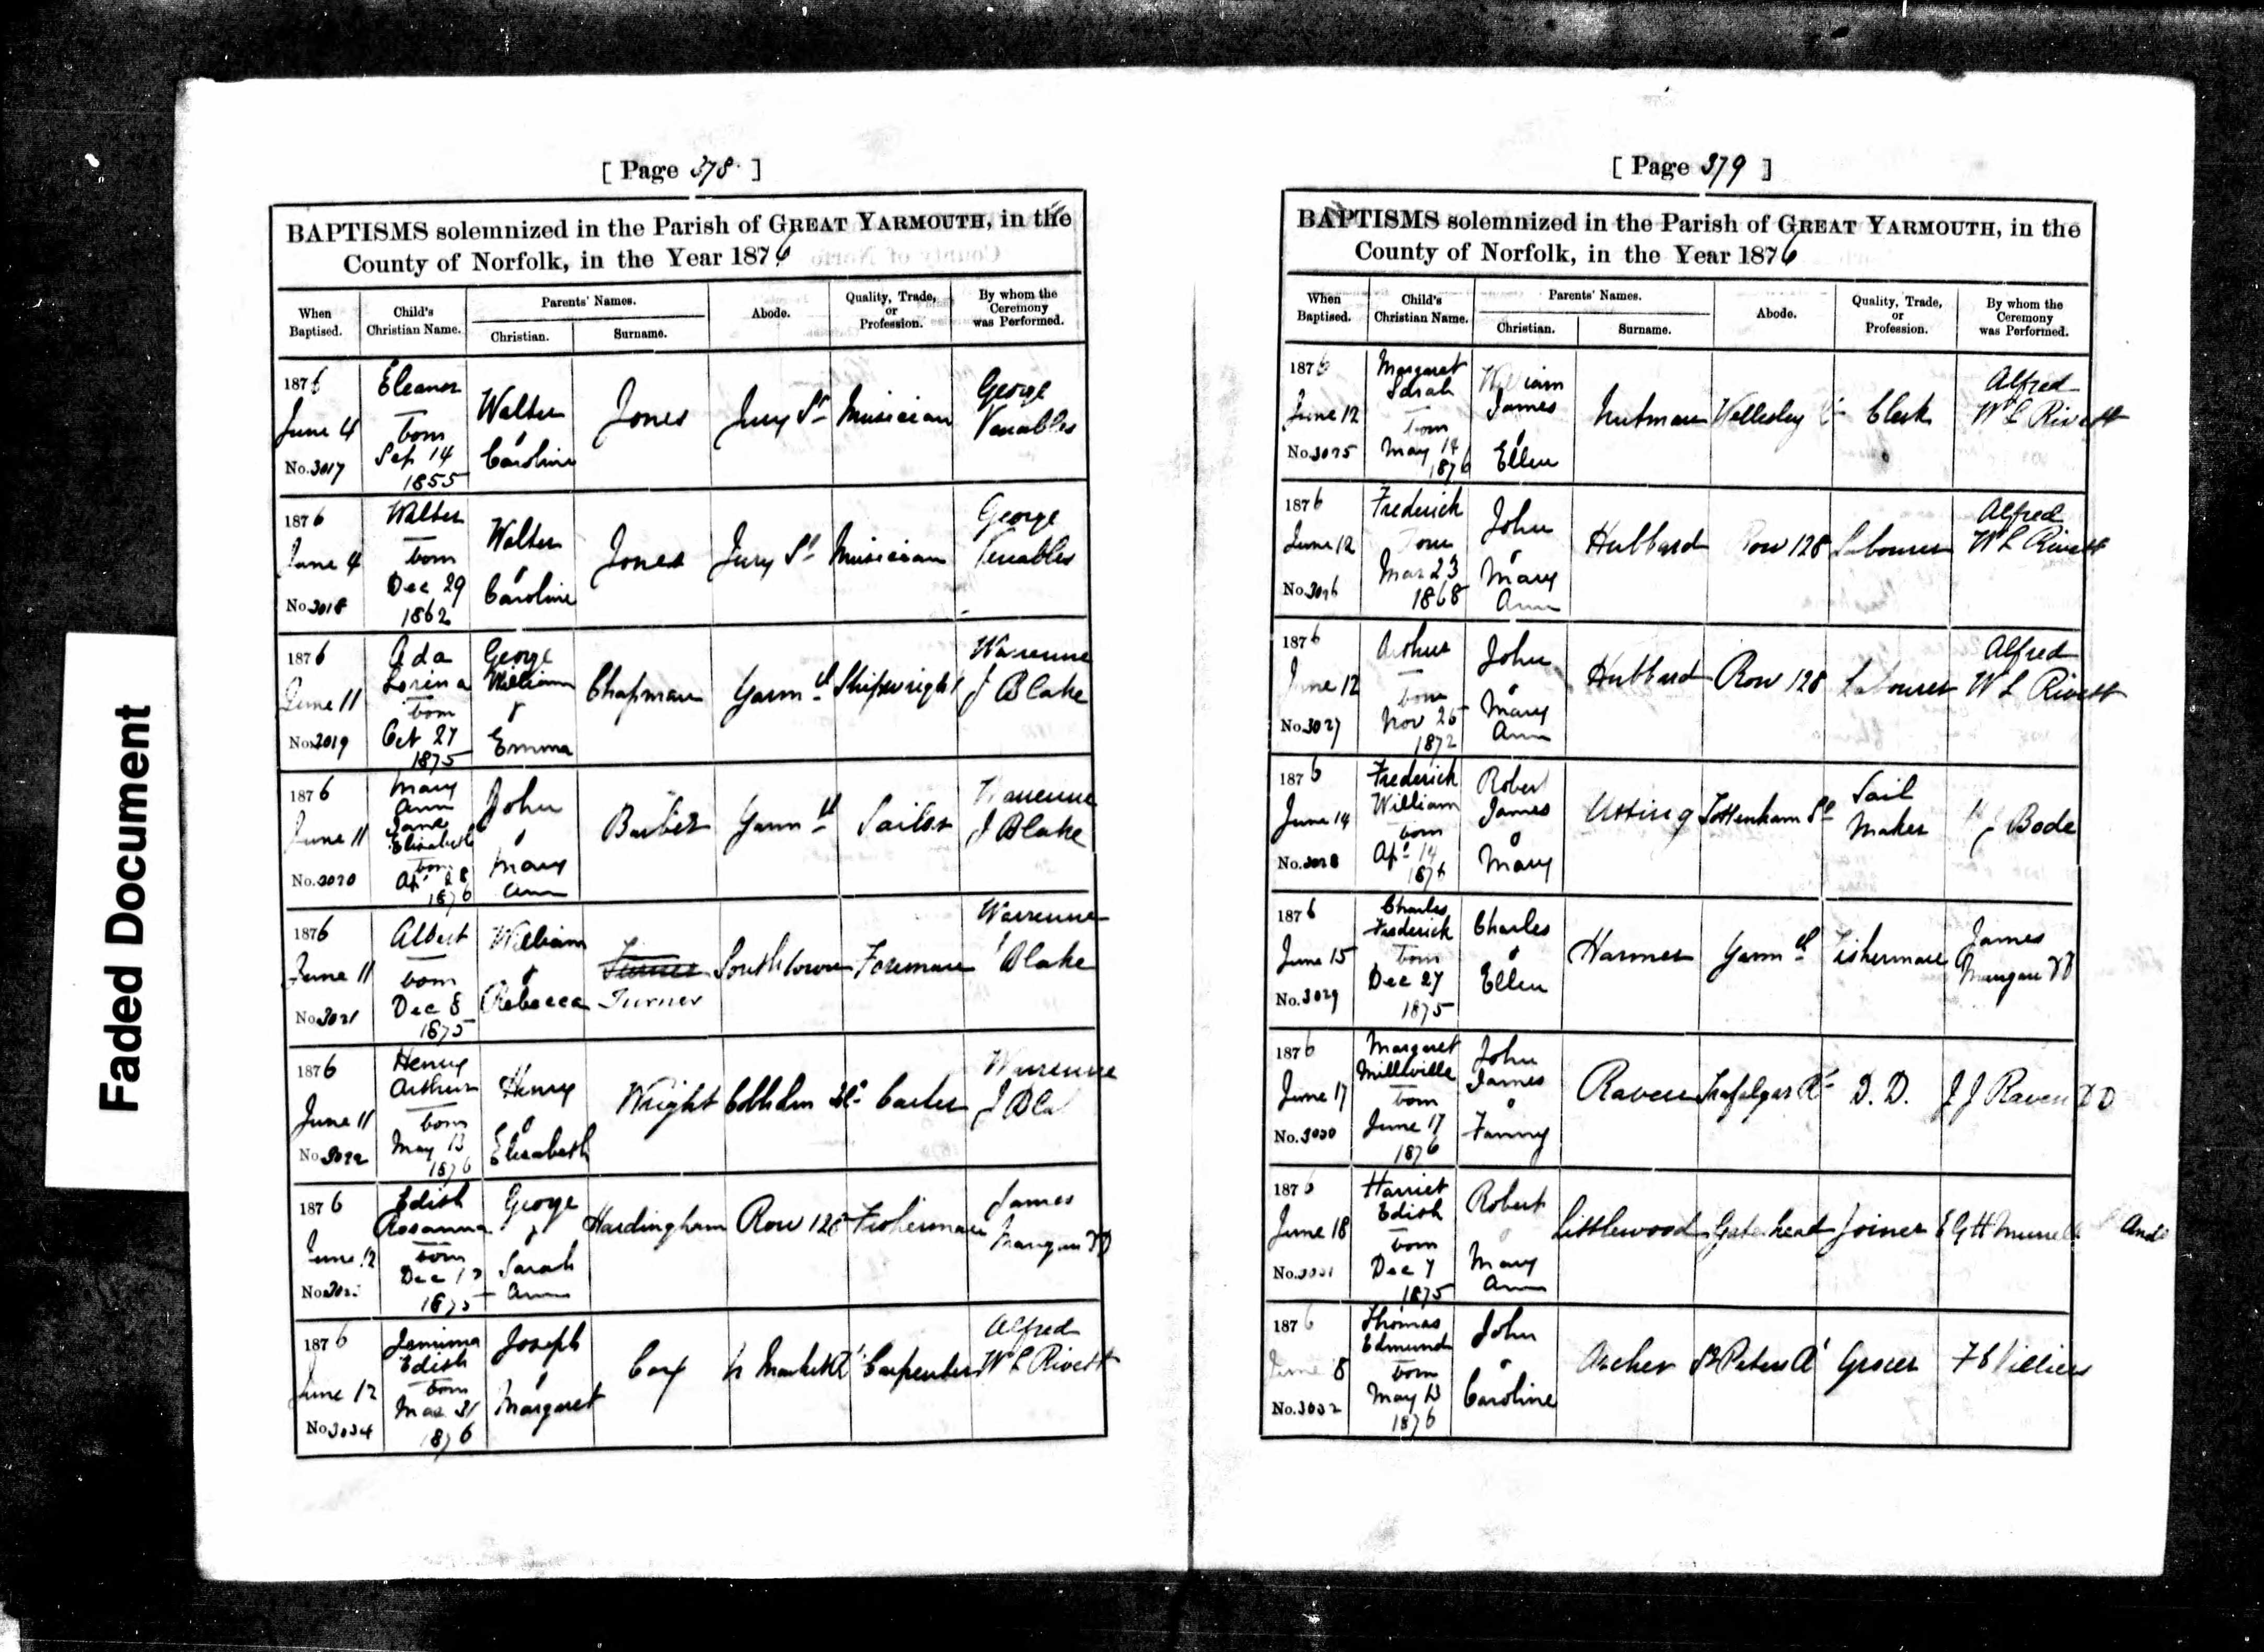 Faded Document
[ Page 378. ]
BAPTISMS solemnized in the Parish of GREAT YARMOUTH, in the
County of Norfolk, in the Year 1876
When Baptised. Child's Christian Name. Parents' Names. Abode. Quality, Trade, or Profession. By whom the Ceremony was Performed.
Christian. Surname.
1876 June 4 No. 3017 Eleanor born Sep 14 1855 Walter & Caroline Jones Jury St Musician George Venables
1876 June 4 No. 3018 Walter born Dec 29 1862 Walter & Caroline Jones Jury St Musician George Venables
1876 June 11 No. 3019 Ada Lorina born Oct 27 1875 George William & Emma Chapman Yarmth Shipwright Warenne J Blake
1876 June 11 No. 3020 Mary Ann Jane Elizabeth born Apl 28 1876 John & Mary Ann Barber Yarmth Sailor Warenne J Blake
1876 June 11 No. 3021 Albert born Dec 8 1875 William & Rebecca Turner Turner Southtown Foreman Warrenne Blake
1876 June 11 No. 3022 Henry Arthur born May 13 1876 Henry & Elizabeth Wright Cobholm Carter Warrenne J Bla
1876 June 12 No. Edith Rosanna born Dec 1875 George & Sarah Ann Hardingham Row 128 Fisherman James Mangan DD
1876 June 12 No. 3024 Jemima Edith born Mar 31 1876 Joseph & Margaret Cox N Market Rd Carpenter Alfred W L Rivett
[ Page 379 ]
BAPTISMS solemnized in the Parish of GREAT YARMOUTH, in the
County of Norfolk, in the Year 1876
When Baptised. Child's Christian Name. Parents' Names. Abode. Quality, Trade, or Profession. By whom the Ceremony was Performed.
Christian. Surname.
1876 June 12 No. 3025 Margaret Sarah born May 14 1876 William James & Ellen Nutman Wellesley Clerk Alfred W L Rivett
1876 June 12 No. 3026 Frederick born Mar 23 1868 John & Mary Ann Hubbard Row 128 Labourer Alfred W L Rivett
1876 June 12 No. 3027 Arthur born Nov 25 1872 John & Mary Ann Hubbard Row 128 Labourer Alfred W L Rivett
1876 June 14 No. 3028 Frederick William born Apl 14 1876 Robert James & Mary Utting Tottenham St Sail Maker J Bode
1876 June 15 No. 3029 Charles Frederick born Dec 27 1875 Charles & Ellen Harmer Yarmth Fisherman James Mangan DD
1876 June 17 No. 3030 Margaret Millville born June 17 1876 John James & Fanny Raven Trafalgar Rd D. D. J J Raven DD
1876 June 18 No. 3031 Harriet Edith born Dec 7 1875 Robert & Mary Ann Littlewood Gateshead Joiner E G H Murrell
1876 June 8 No. 3032 Thomas Edmund born May 13 1876 John & Caroline Archer St Peters Rd Grocer Villiers